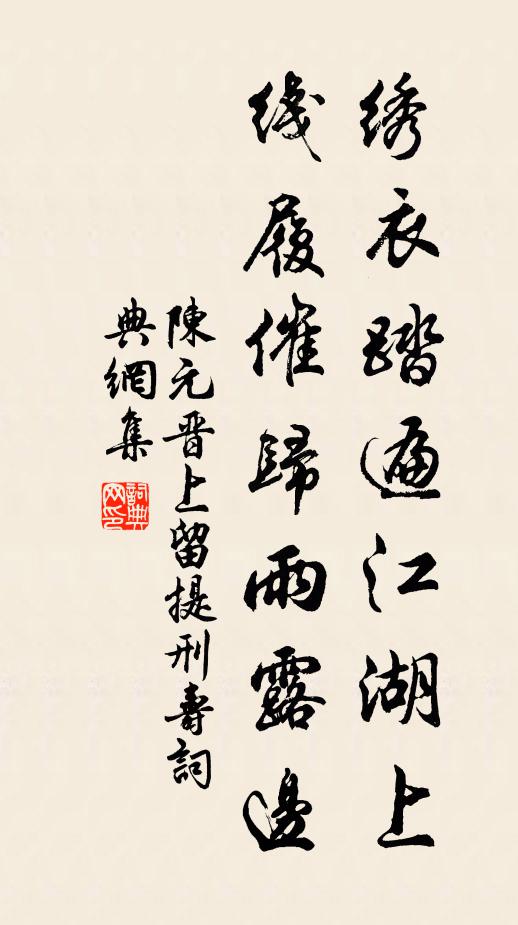 綉衣踏遍江湖上
綫履催歸雨露邊
陳元晋上留提刑壽詞
典網集
詞典网印